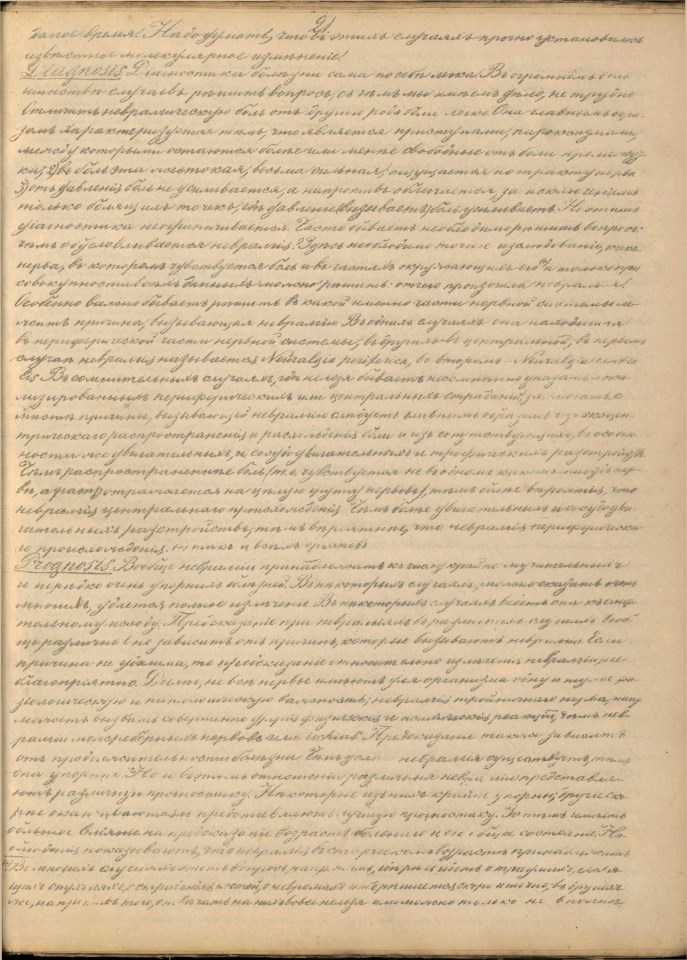 2)
долгое время! Надо думать, что въ этихъ случаяхъ прочно установилось
извѣстное молекулярное измѣненіе!
Diagnosis. Діагностика болѣзни сама по себѣ легка. Въ огромномъ боль-
шинствѣ случаевъ рѣшить вопросъ, съ чѣмъ мы имѣемъ дѣло, не трудно
Отличить невралгическую боль отъ другихъ рода боли легко. Она главнымъ обра-
зомъ характеризуется тѣмъ, что является приступами, пароксизмами,
между которыми остаются болѣе или менѣе свободные отъ боли промежут-
ки; 2) боль эта жестокая, весьма сильная; ощущается по тракту нерва
3) отъ давленія боль не усиливается, а напротивъ облегчается, за исключеніемъ
только болящихъ точекъ, гдѣ давленіе (вызываетъ) боль усиливаетъ. Но этимъ
діагностика не ограничивается. Часто бываетъ необходимо рѣшить вопросъ
чѣмъ обусловливается невралгія? Здѣсь необходимо точное изслѣдованіе, какъ
нерва, въ которомъ чувствуется боль и въ частяхъ окружающихъ его и только при
совокупности всѣхъ данныхъ можно рѣшить: отчего произошла невралгія!
Особенно важно бываетъ рѣшить въ какой именно части нервной системы ле-
житъ причина, вызывающая невралгію. Въ однихъ случаяхъ она находится
въ периферической части нервной системы; въ другихъ въ центральной; въ первомъ
случаѣ невралгія называется Neuralgia periferica, во второмъ Neuralgia centra-
lis. Въ сомнительныхъ случаяхъ, гдѣ нельзя бываетъ
причины, вызывающей невралгію слѣдуетъ главнымъ образомъ
трическаго распространенія и расположенія боли и изъ сопутствующихъ, въ особен-
ности же двигательныхъ, и сосудодвигательныхъ и трофическихъ разстройствъ.
Чѣмъ распространеннѣе боль (т.е. чувствуется не въ одномъ какомъ нибудь нер-
вѣ, а распространяется на цѣлую группу нервовъ), тѣмъ болѣе вѣроятія, что
невралгія центральнаго происхожденія. Чѣмъ болѣе двигательныхъ и сосудодви-
гательныхъ разстройствъ, тѣмъ вѣроятнѣе, что невралгія периферическа-
го происхожденія
Prognosis. Вообще невралгіи принадлежатъ къ числу крайне мучительныхъ
и нерѣдко очень упорныхъ болѣзней. Въ нѣкоторыхъ случаяхъ, можно сказать во
многихъ, удается полное излеченіе. Въ нѣкоторыхъ случаяхъ ведетъ она къ смер-
тельному исходу. Предсказаніе при невралгіяхъ въ различныхъ случаяхъ вооб-
ще различно и зависитъ отъ причинъ, которые вызываютъ невралгію. Если
причина не удалима, то и предсказаніе относительно излѣченія невралгіи не-
благопріятно. Далѣе, не всѣ нервы имѣютъ для организма одну и ту же фи-
зіологическую и патологическую важность; невралгія тройничнаго нерва, напр.
можетъ вызвать совершенно другія физическія и психическія реакціи, чѣмъ нев-
ралгія межреберныхъ нервовъ или ischias. Предсказаніе также зависитъ
отъ продолжительности болѣзни. Чѣмъ долѣе невралгія существуетъ, тѣмъ
она упорнѣе. Но и въ этомъ отношеніи различныя невралгіи представля-
ютъ различную прогностику. Нѣкоторые изъ нихъ крайне упорны; другіе ско-
рѣе оканчиваются и представляютъ лучшую прогностику. Затѣмъ имѣетъ
большое вліяніе на предсказаніе возрастъ больнаго и его общее состояніе. На-
блюденія показываютъ, что невралгіи въ старческомъ возрастѣ принадлежатъ
Во многихъ случаяхъ этотъ вопросъ, напримѣръ,
же, напримѣръ того, отвѣчать на нихъ вовсе нельзя или можно только не вполнѣ,